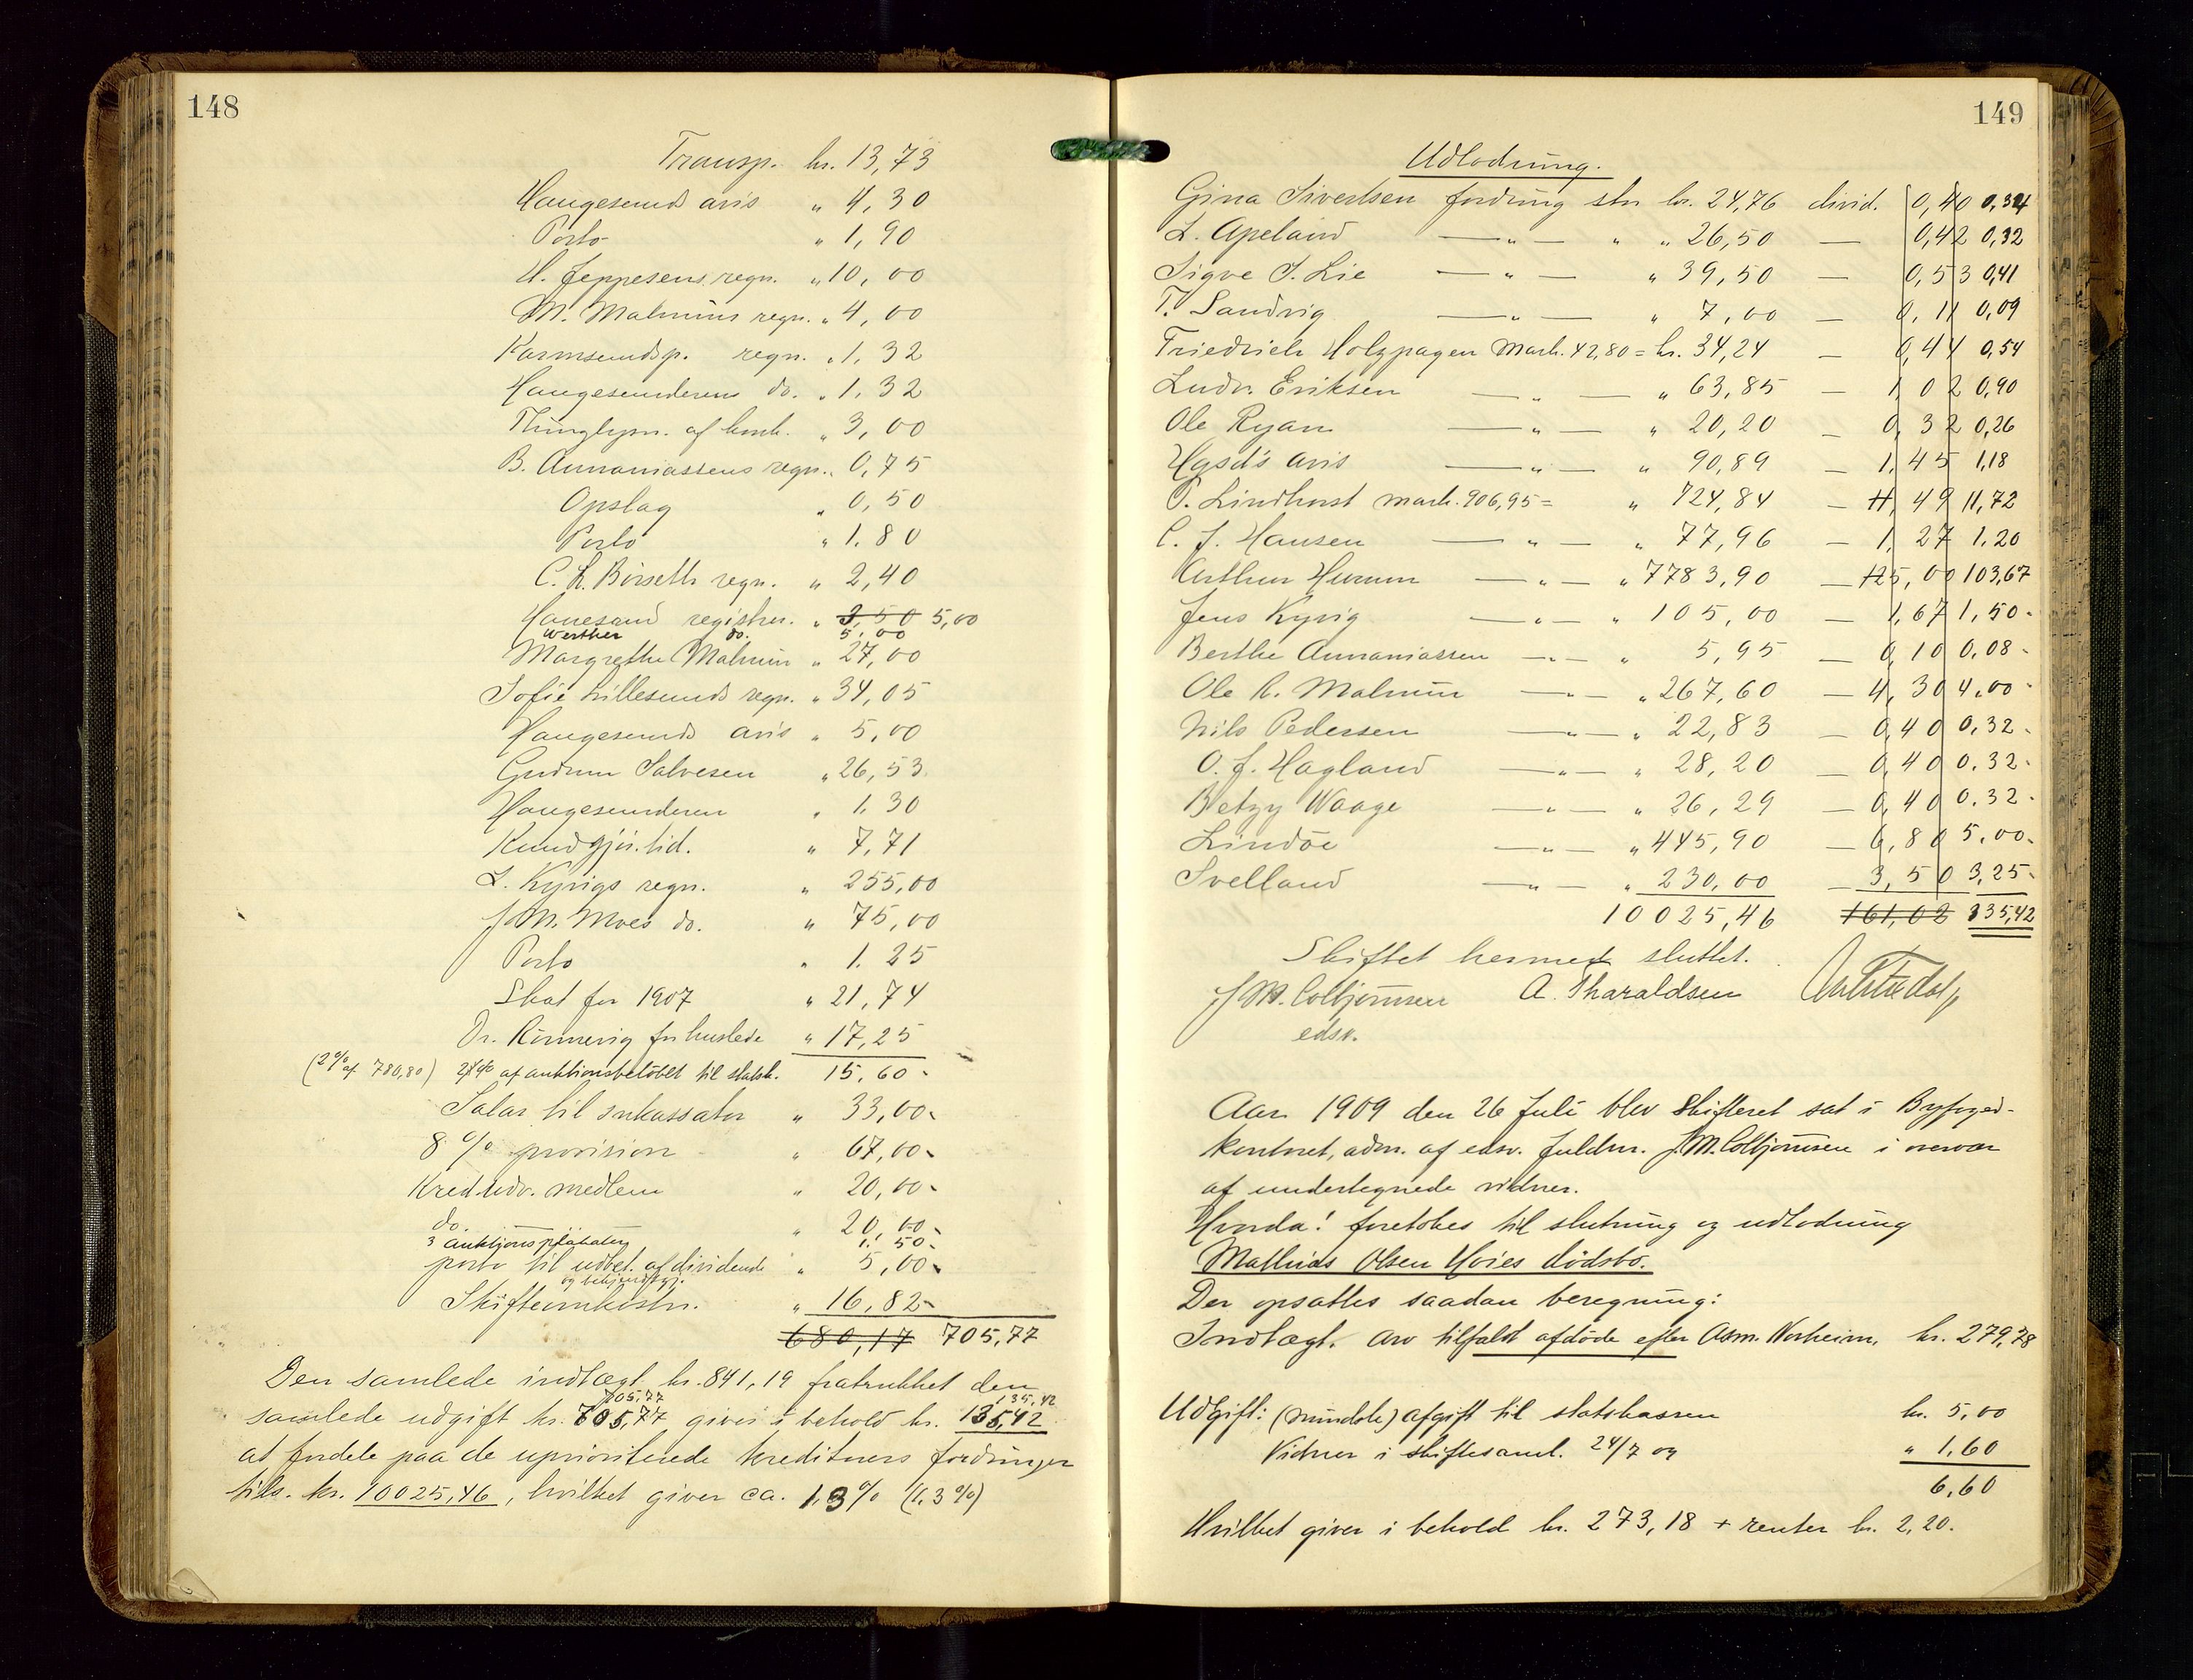 148
Transp. kr. 13,73
Haugesunds avis " 4,30
Porto " 1,90
H. Jeppesens regn. " 10,00
M. Malmins regn. " 4,00
Karmsundsp. regn. " 1,32
Haugesunderens do. " 1,32
Thinglysn. af konk. " 3,00
B. Annaniassens regn. " 0,75
Opslag " 0,50
Porto " 1,80
C. L. Børseth regn. " 2,40
Hanesand registrer. " 3,50 5,00
Werther do. 5,00
Margrethe Malmin " 27,00
Sofie Lillesunds regn. " 34,05
Haugesunds avis " 5,00
Gudrun Salvesen " 26,53
Haugesunderen " 1,30
Kundgjør. tid. " 7,71
L. Kyvigs regn. " 255,00
J. M. Moes do. " 75,00
Porto " 1,25
Skat for 1907 " 21,74
Dr. Rønnevig for husleie " 17,25
(2% af 780,80) 2% af auktionsbeløbet til statsk. 15,60
Salar til inkassator " 33,00
8% provision " 67,00
Kred.udv. medlem " 20,00
do. " 20,00
3 auktjonsplakater 1,50
porto til udbet. af dividende " 5,00
og bekjendtgj.
Skifteomkostn. " 16,82
680,17 705,77
Den samlede indtægt kr. 841,19 fratrukket den
705,77 135,42
samlede udgift kr. 705,77 giver i behold kr. 135,42
at fordele paa de uprioriterede kreditorers fordringer
tils. kr. 10025,46, hvilket giver ca. 1,3% (1,3%)
149
Udlodning.
Gina Sivertsen fordring stor kr. 24,76 divid. 0,40 0,34
L. Apeland — " — " " 26,50 — 0,42 0,32
Sigve S. Lie — " — " 39,50 — 0,53 0,41
T. Sandvig — " — " 7,00 — 0,11 0,09
Friedrich Holzpagen Mark. 42,80 = kr. 34,24 — 0,44 0,54
Ludv. Eriksen — " — " 63,85 — 1,02 0,90
Ole Ryan — " — " 20,20 — 0,32 0,26
Hgsd's avis — " — " 90,89 — 1,45 1,18
P. Lindhorst mark. 906,95 = " 724,84 — 11,49 11,72
C. J. Hansen — " — " 77,96 — 1,27 1.20
Arthur Hurum — " — " 7783,90 — 125,00 103,67
Jens Kyvig — " — " 105,00 — 1,67 1,50
Berthe Annaniassen — " — " 5,95 — 0,10 0,08
Ole R. Malmin — " — " 267,60 — 4,30 4,00
Nils Pedersen — " — " 22,83 — 0,40 0,32
O. J. Hagland — " — " 28,20 — 0,40 0.32
Betzy Waage — " — " 26,29 — 0,40 0.32
Lindøe — " — " 445,90 — 6,80 5,00
Svelland — " — " 230,00 — 3,50 3,25
10025,46 161,02 135,42
Skiftet hermed sluttet.
J. M. Colbjørnsen A. Tharaldsen
edsv.
Aar 1909 den 26 Juli blev skifteret sat i Byfoged-
kontoret, adm. af edsv. fuldm. J. M. Colbjørnsen i overvær
af undertegnede vidner.
Hvorda! foretokes til slutning og udlodning
Mathias Olsen Høies dødsbo.
Der opsattes saadan beregning:
Indtægt. Arv tilfaldt afdøde efter Asm. Norheim. kr. 279,78
Udgift: (mindste) afgift til statskassen kr. 5,00
Vidner i skiftesaml. 24/7 og " 1,60
6,60
Hvilket giver i behold kr. 273,18 + renter kr. 2,20.